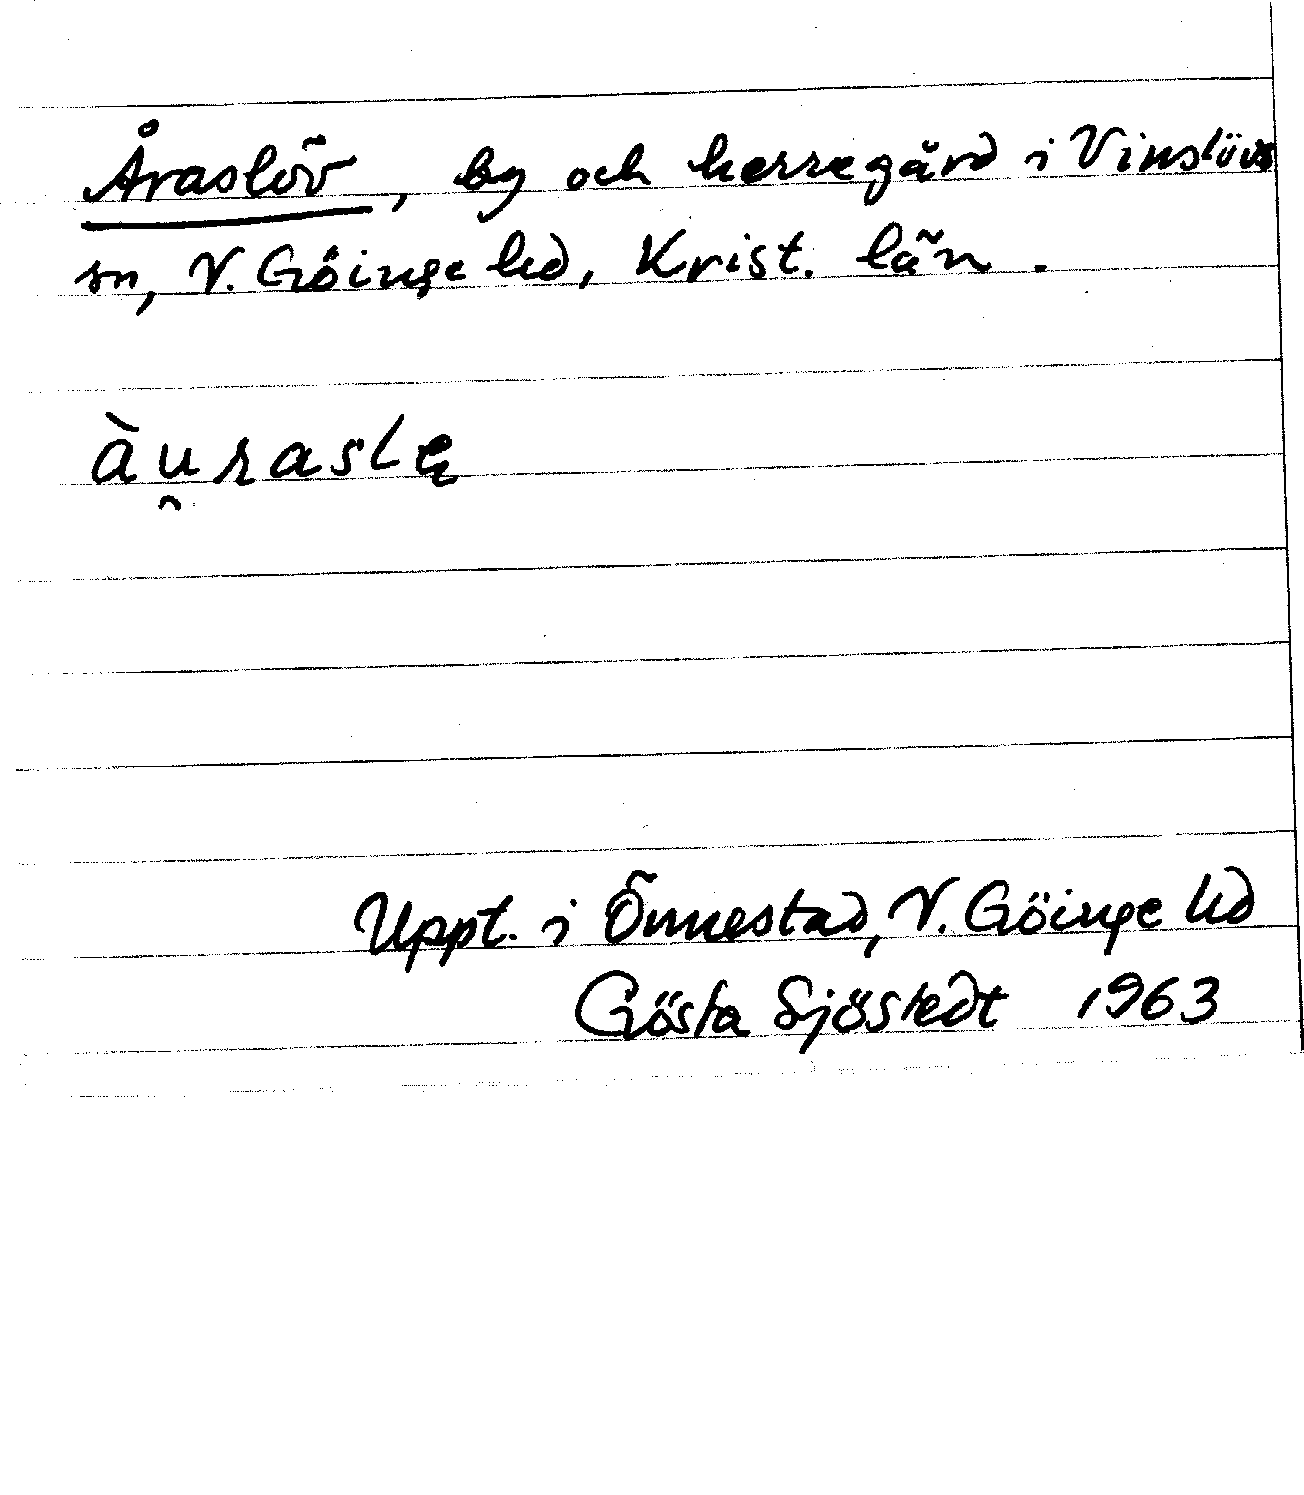 Åraslöv, by och herregård i Vinslövs
sn, V. Göinge hd, Krist. län.
àu̯raslę
Uppt. i Önnestad, V. Göinge hd
Gösta Sjöstedt 1963